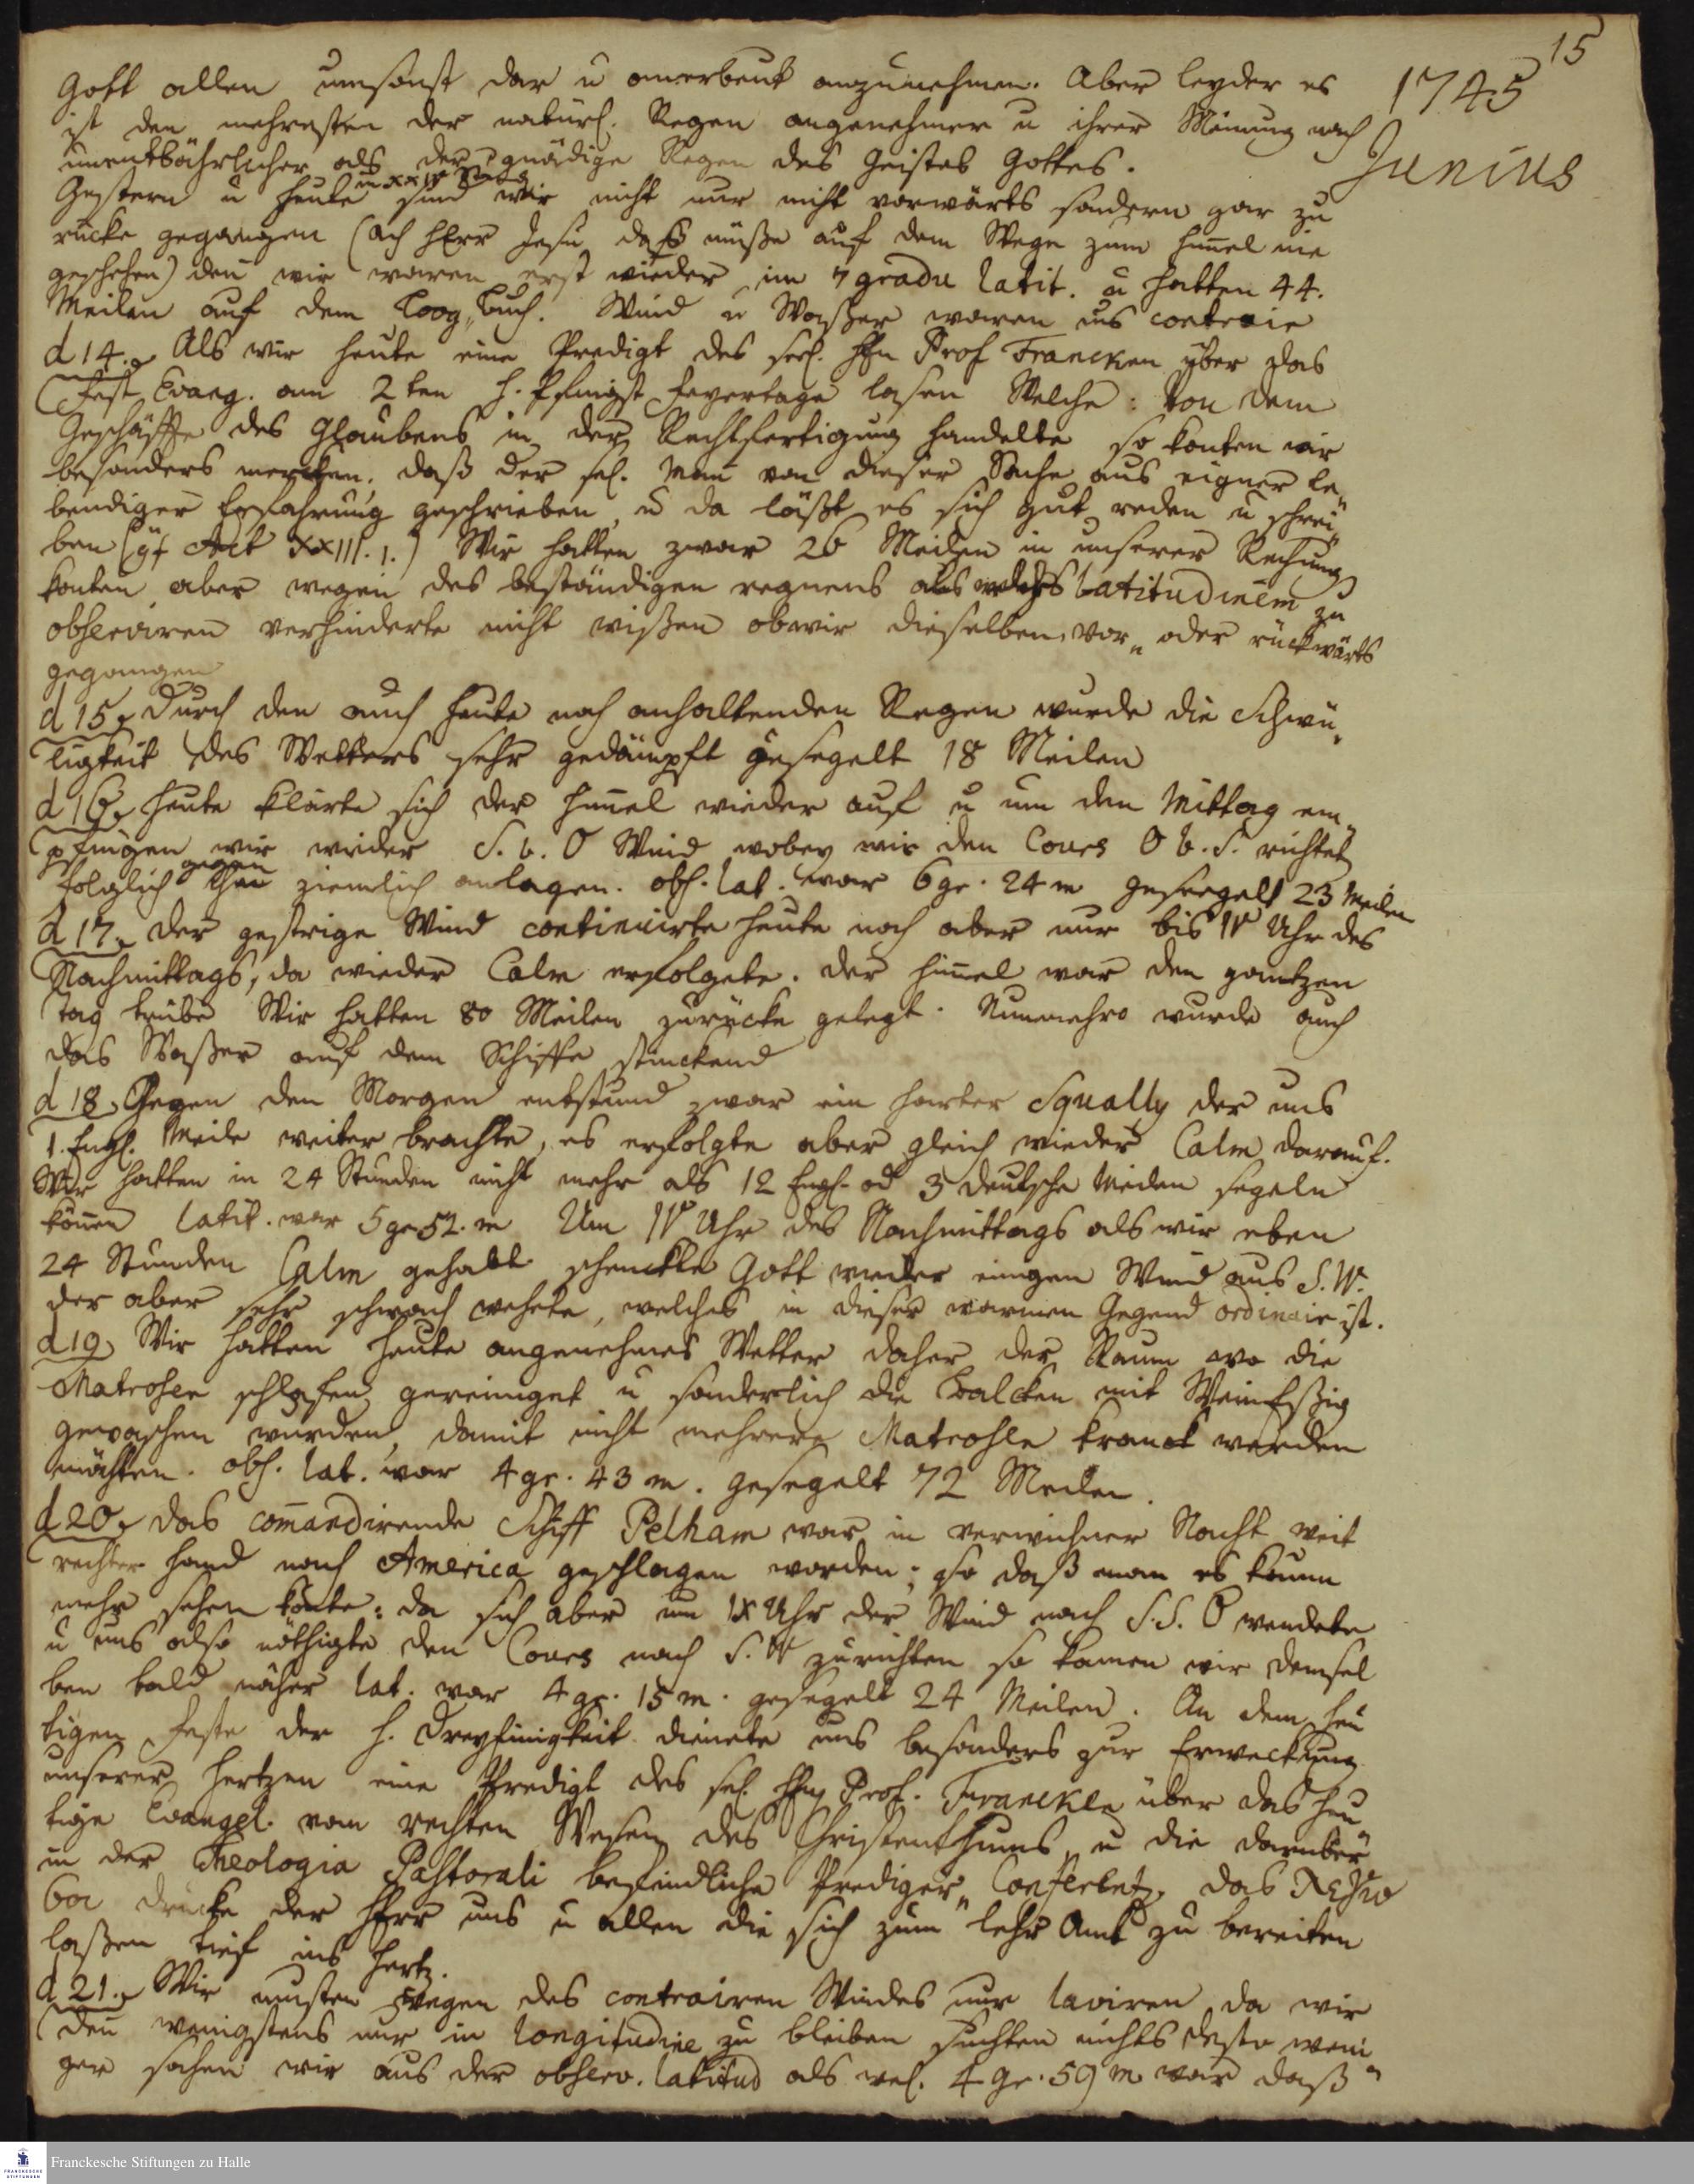 15
1745
Junius
Gott allen umsonst dar u anerbeut anzunehmen. Aber leyder es
ist den mehresten der natürl. Regen angenehmer u ihrer Meinung nach
unentbährlicher als der gnädige Regen des Geistes Gottes.
Gestern u heute in XXIV Stund sind wir nicht nur nicht vorwärts sondern gar zu
rücke gegangen (Ach HErr Jesu daß müße auf dem Wege zum Him̅el nie
geschehen) den̅ wir waren erst wieder im 7 gradu latit. u hatten 44.
Meilen auf dem Loog„Buch. Wind u Waßer waren uns contrair
d 14. Als wir heute eine Predigt des seel. HEn Prof Francken über das
Fest Evang. am 2ten h. Pfingst Feyertage lasen Welche: Von dem
Geschäffte des Glaubens in der Rechtfertigung handelte so konten wir
besonders mercken, daß der sel. Man̅ von dieser Sache aus eigner le„
bendiger Erfahrung geschrieben, u da läßt es sich gut reden u schrei„
ben (gf Act XXIII. 1.) Wir hatten zwar 26 Meilen in unserer Rechnung
konten aber wegen des beständigen regnens als welches Latitudinem zu
observiren verhinderte nicht wißen ob wir dieselben vor„ oder rückwärts
gegangen
d 15. Durch den auch heute noch anhaltenden Regen wurde die Schwü„
ligkeit des Wetters sehr gedämpft gesegelt 18 Meilen
d 16. Heute klärte sich der Him̅el wieder auf u um den Mittag em„
pfingen wir wieder S. b. O Wind wobey wir den Cours O b. S. richtet
folglich gegen ihn ziemlich anlagen. obs. lat. war 6 gr. 24 m geseegelt 23 Meilen
d 17. Der gestrige Wind continuirte heute noch aber nur bis IV Uhr des
Nachmittags, da wieder Calm erfolgete. Der Him̅el war den gantzen
Tag trübe Wir hatten 80 Meilen zurücke gelegt. Nunmehro wurde auch
das Waßer auf dem Schiffe stinckend
d 18. Gegen den Morgen entstund zwar ein harter Squally der uns
1. Engl. Meile weiter brachte, es erfolgte aber gleich wieder Calm darauf.
Wir hatten in 24 Stunden nicht mehr als 12 Engl. od 3 deutsche Meilen segeln
kön̅en latit. war 5 gr 52. m Um IV Uhr des Nachmittags als wir eben
24 Stunden Calm gehabt schenckte Gott wieder einigen Wind aus S. W.
der aber sehr schwach wehete, welches in dieser warmen Gegend ordinair ist.
d 19. Wir hatten heute angenehmes Wetter daher der Raum wo die
Matrosen schlafen gereiniget u sonderlich die Balcken mit WeinEßig
gewaschen wurden, damit nicht mehrere Matrosen kranck werden
möchten. obs. lat. war 4 gr. 43 m. gesegelt 72 Meilen.
d 20. Das com̅andirende Schiff Pelham war in verwichner Nacht weit
rechter Hand nach America geschlagen worden; so daß man es kaum
mehr sehen konte: da sich aber um IX Uhr der Wind nach S. S. O wendete
u uns also nöthigte den Cours nach S. W zurichten so kamen wir demsel
ben bald näher lat. war 4 gr. 15 m. gesegelt 24 Meilen. An dem heu
tigen Feste der h. Dreyeinigkeit dienete uns besonders zur Erweckung
unserer Hertzen eine Predigt des sel. HEn Prof. Francken über das heu
tige Evangel. vom rechten Wesen des Christenthums u die darüber
in der Theologia Pastorali befindliche Prediger„ Conferentz. Das
drücke der HErr uns u allen die sich zum lehr Amt zu bereiten
laßen tief ins Hertz.
d 21. Wir musten wegen des contrairen Windes nur laviren da wir
den̅ wenigstens nur in longitudine zu bleiben suchten nichts desto weni
ger sahen wir aus der observ. latitud als wel. 4 gr. 59 m war daß
Franckesche Stiftungen zu Halle
FRANCKESCHE STIFTUNGEN